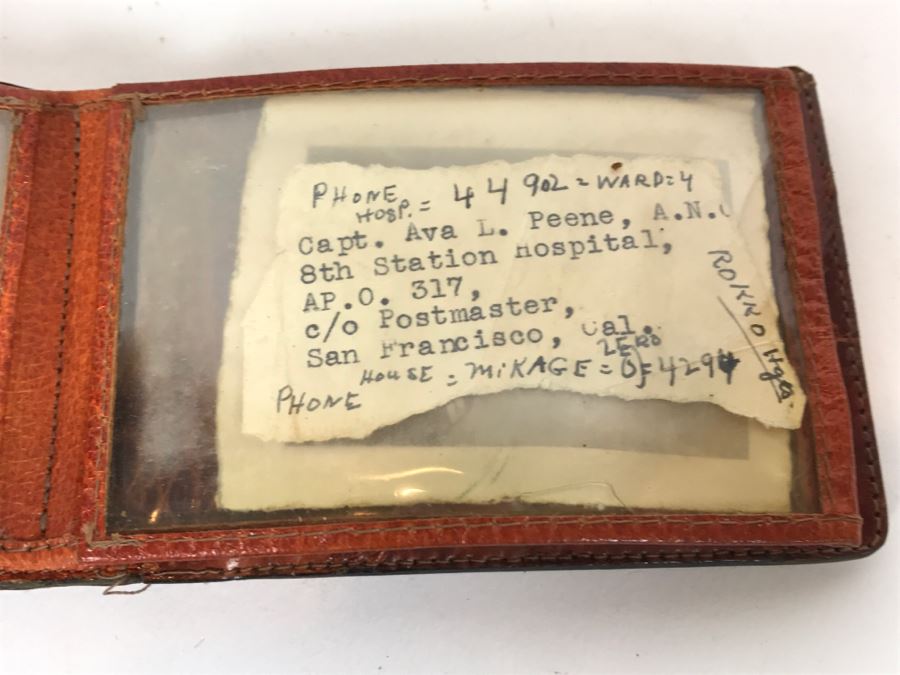 PHONE
HOSP. = 44 902 = WARD = 4
Capt. Ava L. Peene, A.N.C
8th Station Hospital,
AP.O. 317,
c/o Postmaster,
San Francisco, Cal.
ZERO
HOUSE = MIKAGE = 0 = 4294
PHONE
ROKKO Hgts